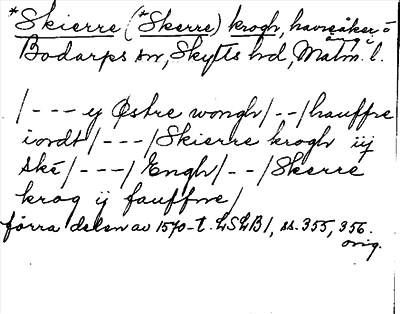 *Skierre (*Skerre) krogh, havreåker- o
äng i
Bodarps sn, Skytts hd, Malm. l.
/--- ej Østre wongh/--/hauffre
iordt/---/Skierre krogh iij
ske/---/Engh/--/Skerre
krog ij fauffne/
förra delen av 1570-t. LSLB1, ss. 355, 356.
orig.